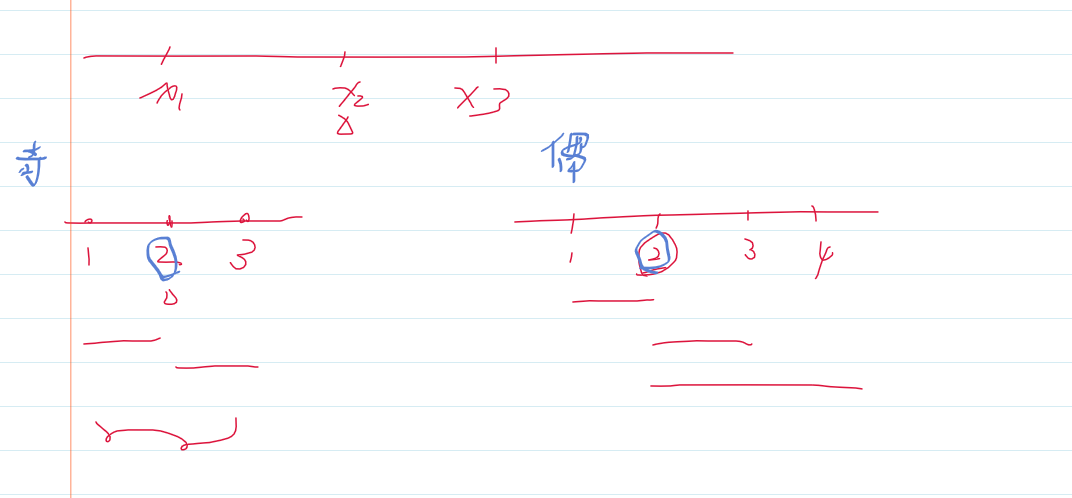 x1 x2 x3
奇 偶
1 2 3 1 2 3 4